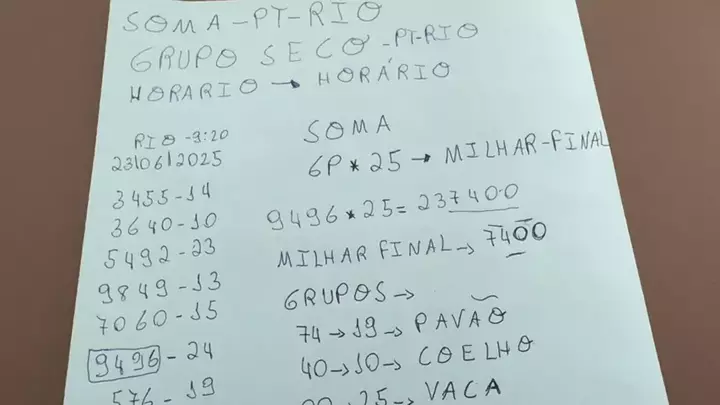 SOMA-PT-RIO
GRUPO SECO-PT-RIO
HORARIO → HORÁRIO
RIO-9:20
23|06|2025
3455-14
3640-10
5492-23
9849-13
7060-15
9496-24
576-19
SOMA
6P*25 → MILHAR-FINAL
9496*25=237400
MILHAR FINAL → 7400
GRUPOS →
74→19→PAVÃO
40→10→COELHO
00→25→VACA